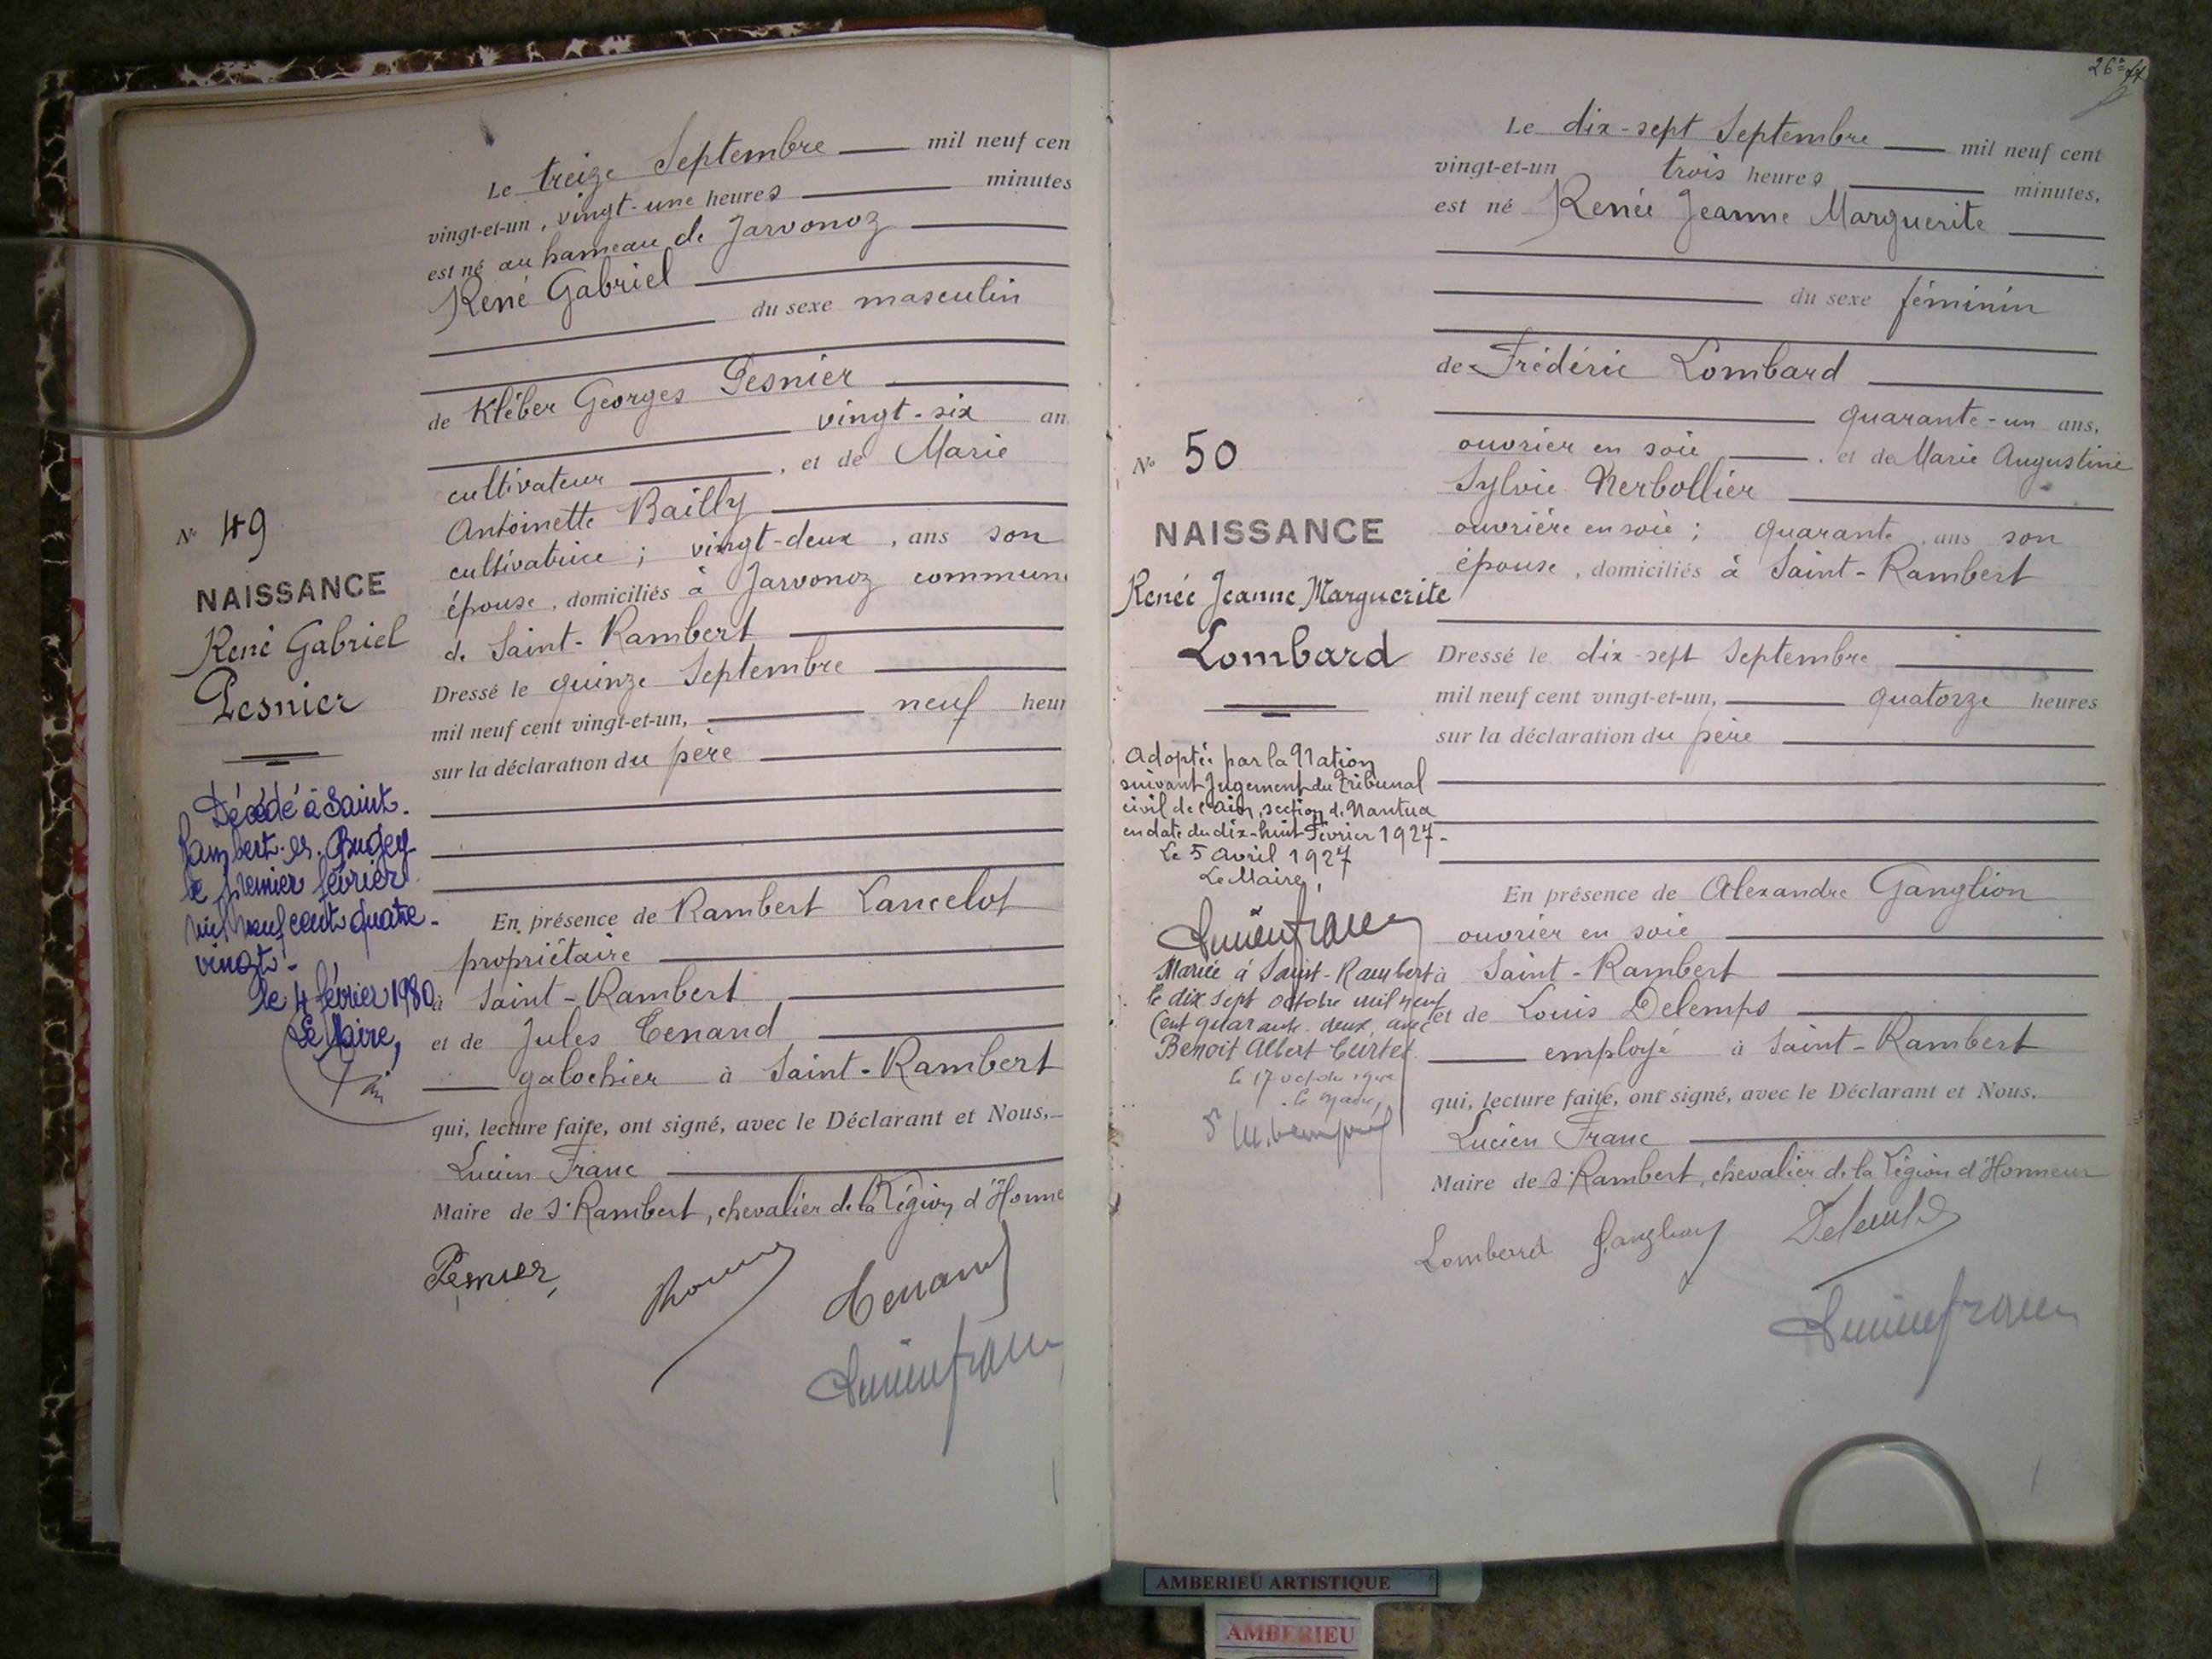 Le treize Septembre mil neuf cen
vingt-et-un, vingt-une heures minutes
est né au hameau de Jarvonoz
René Gabriel
du sexe masculin
de Kléber Georges Pesnier
vingt-six an
cultivateur, et de Marie
Antoinette Bailly
cultivatrice ; vingt-deux, ans son
épouse, domiciliés à Jarvonoz commune
de Saint-Rambert
Dressé le quinze Septembre
mil neuf cent vingt-et-un, neuf heur
sur la déclaration du père
En présence de Rambert Lancelot
propriétaire
à Saint-Rambert
et de Jules Tenand
galochier à Saint-Rambert
qui, lecture faite, ont signé, avec le Déclarant et Nous,
Lucien Franc
Maire de St Rambert, chevalier de la Légion d'Honne
Pesnier,
Tenand
Lucien franc
No 49
NAISSANCE
René Gabriel
Pesnier
Décédé à Saint-
Rambert-en-Bugey
le premier février
mil neuf cent quatre-
vingt.
le 4 février 1980
Le Maire,
26e
Le dix-sept Septembre mil neuf cent
vingt-et-un trois heures minutes,
est né Renée Jeanne Marguerite
du sexe féminin
de Frédéric Lombard
quarante-un ans,
ouvrier en soie, et de Marie Augustine
Sylvie Nerbollier
ouvrière en soie ; quarante, ans son
épouse, domiciliés à Saint-Rambert
Dressé le dix-sept Septembre
mil neuf cent vingt-et-un, quatorze heures
sur la déclaration du père
En présence de Alexandre Ganglion
ouvrier en soie
à Saint-Rambert
et de Louis Delemps
employé à Saint-Rambert
qui, lecture faite, ont signé, avec le Déclarant et Nous.
Lucien Franc
Maire de St Rambert, chevalier de la Légion d'Honneur
Lombard Ganglion Delemps
Lucien franc
No 50
NAISSANCE
Renée Jeanne Marguerite
Lombard
Adoptée par la Nation
suivant Jugement du Tribunal
civil de l'Ain, section de Nantua
en date du dix-huit Février 1927-
Le 5 Avril 1927
Le Maire,
Lucien franc
Mariée à Saint-Rambert
le dix sept octobre mil neuf
cent quarante-deux, avec
Benoit Albert Curtet.
le 17 octobre 1942
Le Maire,
AMBERIEU ARTISTIQUE
AMBERIEU